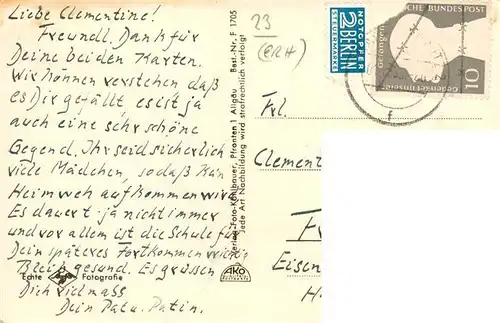 Liebe Clementine!
Freundl. Dank für
Deine beiden Karten.
Wir können verstehen daß
es Dir gefällt es ist ja
auch eine sehr schöne
Gegend. Ihr seid sicherlich
viele Mädchen, so daß kan
Heimweh aufkommen wird
Es dauert ja nicht immer
und vor allem ist die Schule für
Dein späteres Fortkommen wichtig
Bleib gesund. Es grüssen
Dich vielmals
Dein Patu. Patin.
Echte Agfa Fotografie
Verlag-Foto-Kohlbauer, Pfronten i Allgäu Best.-Nr. F 1705
Jede Art Nachbildung wird strafrechtlich verfolgt
AKO
23
(ERH)
NOTOPFER
2 BERLIN
STEUERMARKE
CHE BUNDESPOST
Gedenket unserer
Gefangen
10
Frl.
Clementi
Eisen